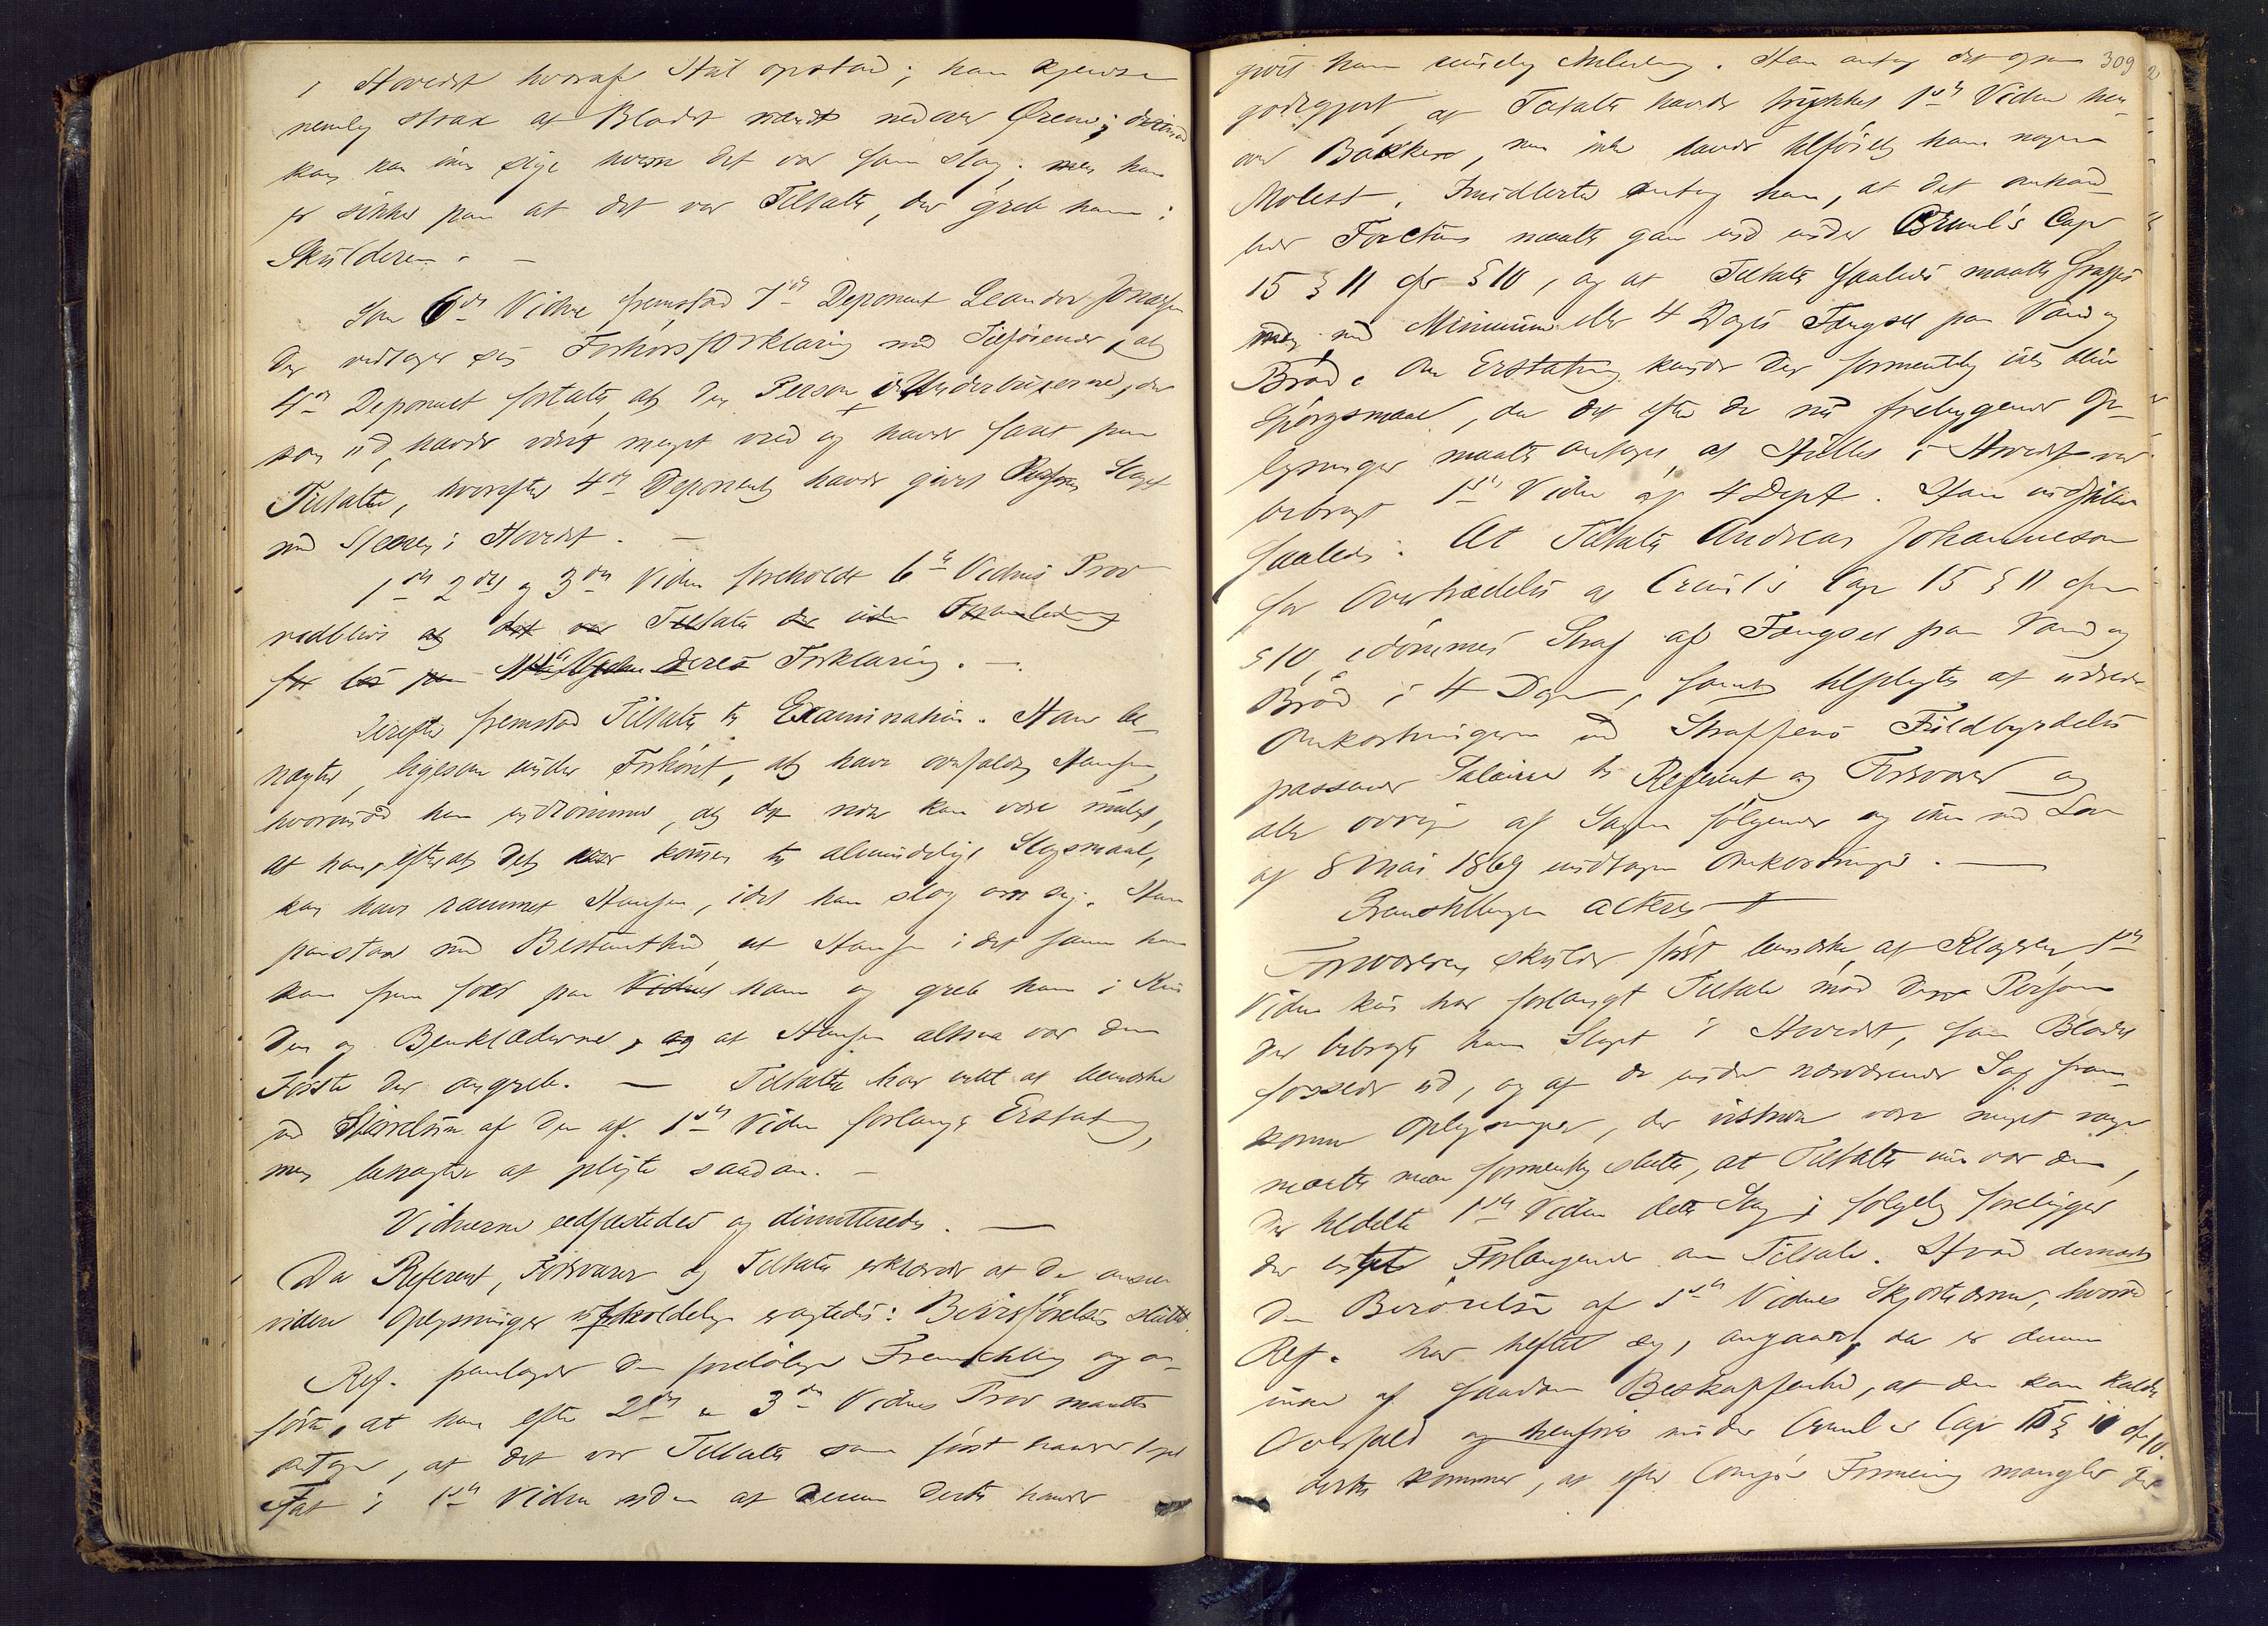 i Hovedet hvoraf Hul opstod; han kjendte
nemlig strax at Blodet randt nedover Ørene; derimod
kan han ikke sige hvem det var som slog; men han
er sikker paa at det var Tiltalte, der greb ham i
Skulderen. –
Som 6te Vidne fremstod 7de Deponent Leander Jonassen
Der vedtager sin Forhørsforklaring med Tilføiende, at
4de Deponent fortalte at den Person i Underbuxerne, der
kom ud, havde været meget vred og havde faret paa
Tiltalte, hvorefter 4de Deponent havde givet Personen Slaget
med Steen i Hovedet. –
1ste 2det og 3die Vidne foreholdt 6te Vidnes Prov
vedblive at det var Tiltalte der uden Foranledning
for løs paa deres Forklaring. –
Derefter fremstod Tiltalte til Examination. Han be-
nægter, ligesom under Forhøret, at have overfaldt Hansen,
hvorimod han indrømmer, at det nok kan være muligt,
at han, efterat det var kommet til almindeligt Slagsmaal,
kan have rammet Hansen, idet han slog om sig. Han
paastaar med Bestemthed at Hansen i det samme han
kom frem foer paa Vidnet ham og greb ham i Kin
den og Benklæderne, og at Hansen altsaa var den
Første der angreb. – Tiltalte har intet at bemærke
ved Størrelsen af den af 1ste Vidne forlangte Erstatning,
men benægter at pligte saadan. –
Vidnerne eedfæstedes og dimitteredes. –
Da Referent, Forsvarer og Tiltalte erklærede at de ansee
videre Oplysninger ufornødne eragtedes: Bevisførelsen sluttet.
Ref. fremlagde den foreløbige Fremstilling og an-
førte, at han efter 2det og 3die Vidnes Prov maatte
antage, at det var Tiltalte som først havde taget
Fat i 1ste Vidne uden at denne dertil havde
309
givet ham rimelig Anledning. Han antog det ogsaa
godtgjort at Tiltalte havde trykket 1ste Vidne hen
over Bakken, men ikke havde tilføiet ham nogen
Molest. Imidlertid antog han, at det omhand-
lede Factum maatte gaa ind under Crml's Cap
15 § 11 cfr § 10, og at Tiltalte saaledes maatte straffes
med Minimum eller 4 Dages Fængsel paa Vand og
Brød. Om Erstatning kunde der formentlig ikke blive
Spørgsmaal, da det efter de nu foreliggende Op-
lysninger maatte antages at Hullet i Hovedet var
bibragt 1ste Vidne af 4 Dept. Han indstillede
saaledes: At Tiltalte Andreas Johannesen
for Overtrædelse af Crml's Cap 15 § 11 cfr
§ 10, idømmes Straf af Fængsel paa Vand og
Brød i 4 Dage, samt tilpligtes at udrede
Omkostningerne ved Straffens Fuldbyrdelse
passende Salairer til Referent og Forsvarer og
alle øvrige af Sagen følgende og ikke ved Lov
af 8 Mai 1869 undtagne Omkostninger. –
Fremstillingen acteres
Forsvareren skulde først bemærke at Klageren 1ste
Vidne kun har forlangt Tiltale mod den Person
der bibragte ham Slaget i Hovedet, som Blodet
fossede ud, og af de under nærværende Sag frem-
komne Oplysninger, der vistnok var meget vage
maatte man formentlig slutte, at Tiltalte ikke var den,
der tildelte 1ste Vidne dette Slag; følgelig foreligger
der intet Forlangende om Tiltale. Hvad dernæst
den Berørelse af 1ste Vidnes Skjorteærme, hvorved
Ref. har heftet sig, angaar, da er denne
ikke af saadan Beskaffenhed, at den kan kaldes
Overfald og henføres under Crml's Cap 15 § 11 cfr 10
dertil kommer, at efter Comp's Formening mangler der